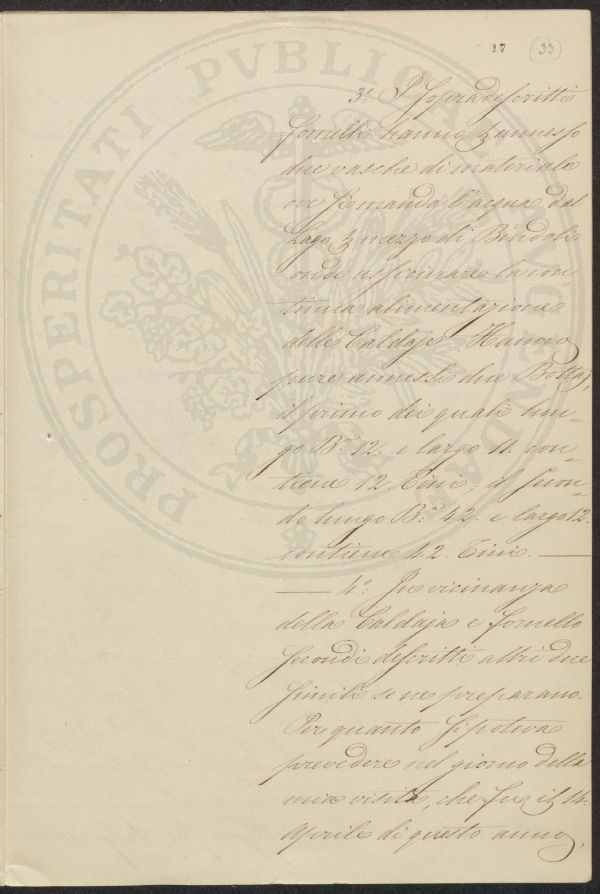 17 (33)
PROSPERITATI PVBLICAE AVGENDAE
3.° I sopradescritti
fornelli hanno annesso
due vasche di materiale
ove si manda l'acqua dal
Lago mezzo di Bindoli
onde assicurare la con-
tinua alimentazione
delle Caldaje. Hanno
pure annessi due Bottaj,
il primo dei quali lun-
go B.ª 12. e largo 11. con-
tiene 12. Tini; il secon-
do lungo B.ª 42. e largo 12.
contiene 42. Tini. —
— 4.° In vicinanza
della Caldaja e fornello
secondi descritti altri due
simili se ne preparano.
Per quanto si poteva
prevedere nel giorno della
mia visita, che fu il 14.
Aprile di questo anno,